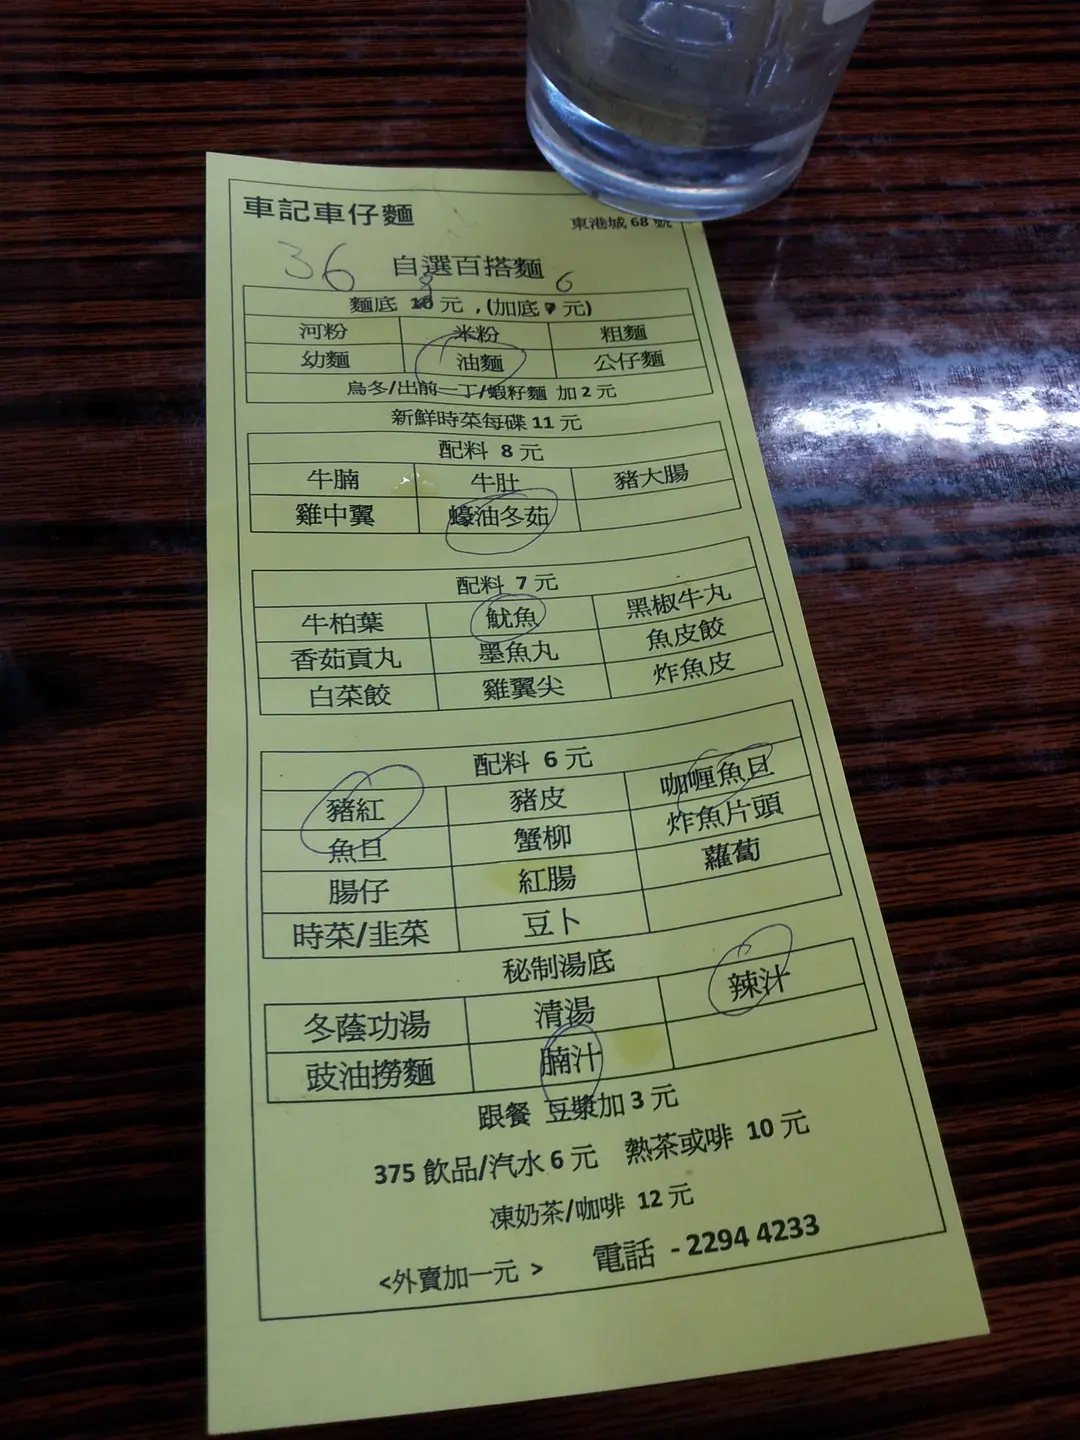 車記車仔麵 東港城 68 號
36 自選百搭麵
8 6
麵底 10 元 , (加底 元)
河粉 米粉 粗麵
幼麵 油麵 公仔麵
烏冬/出前一丁/蝦籽麵 加 2 元
新鮮時菜每碟 11 元
配料 8 元
牛腩 牛肚 豬大腸
雞中翼 蠔油冬茹
配料 7 元
牛柏葉 魷魚 黑椒牛丸
香茹貢丸 墨魚丸 魚皮餃
白菜餃 雞翼尖 炸魚皮
配料 6 元
豬紅 豬皮 咖喱魚旦
魚旦 蟹柳 炸魚片頭
腸仔 紅腸 蘿蔔
時菜/韭菜 豆卜
秘制湯底
冬蔭功湯 清湯 辣汁
豉油撈麵 腩汁
跟餐 豆漿加 3 元
375 飲品/汽水 6 元 熱茶或啡 10 元
凍奶茶/咖啡 12 元
<外賣加一元 > 電話 - 2294 4233